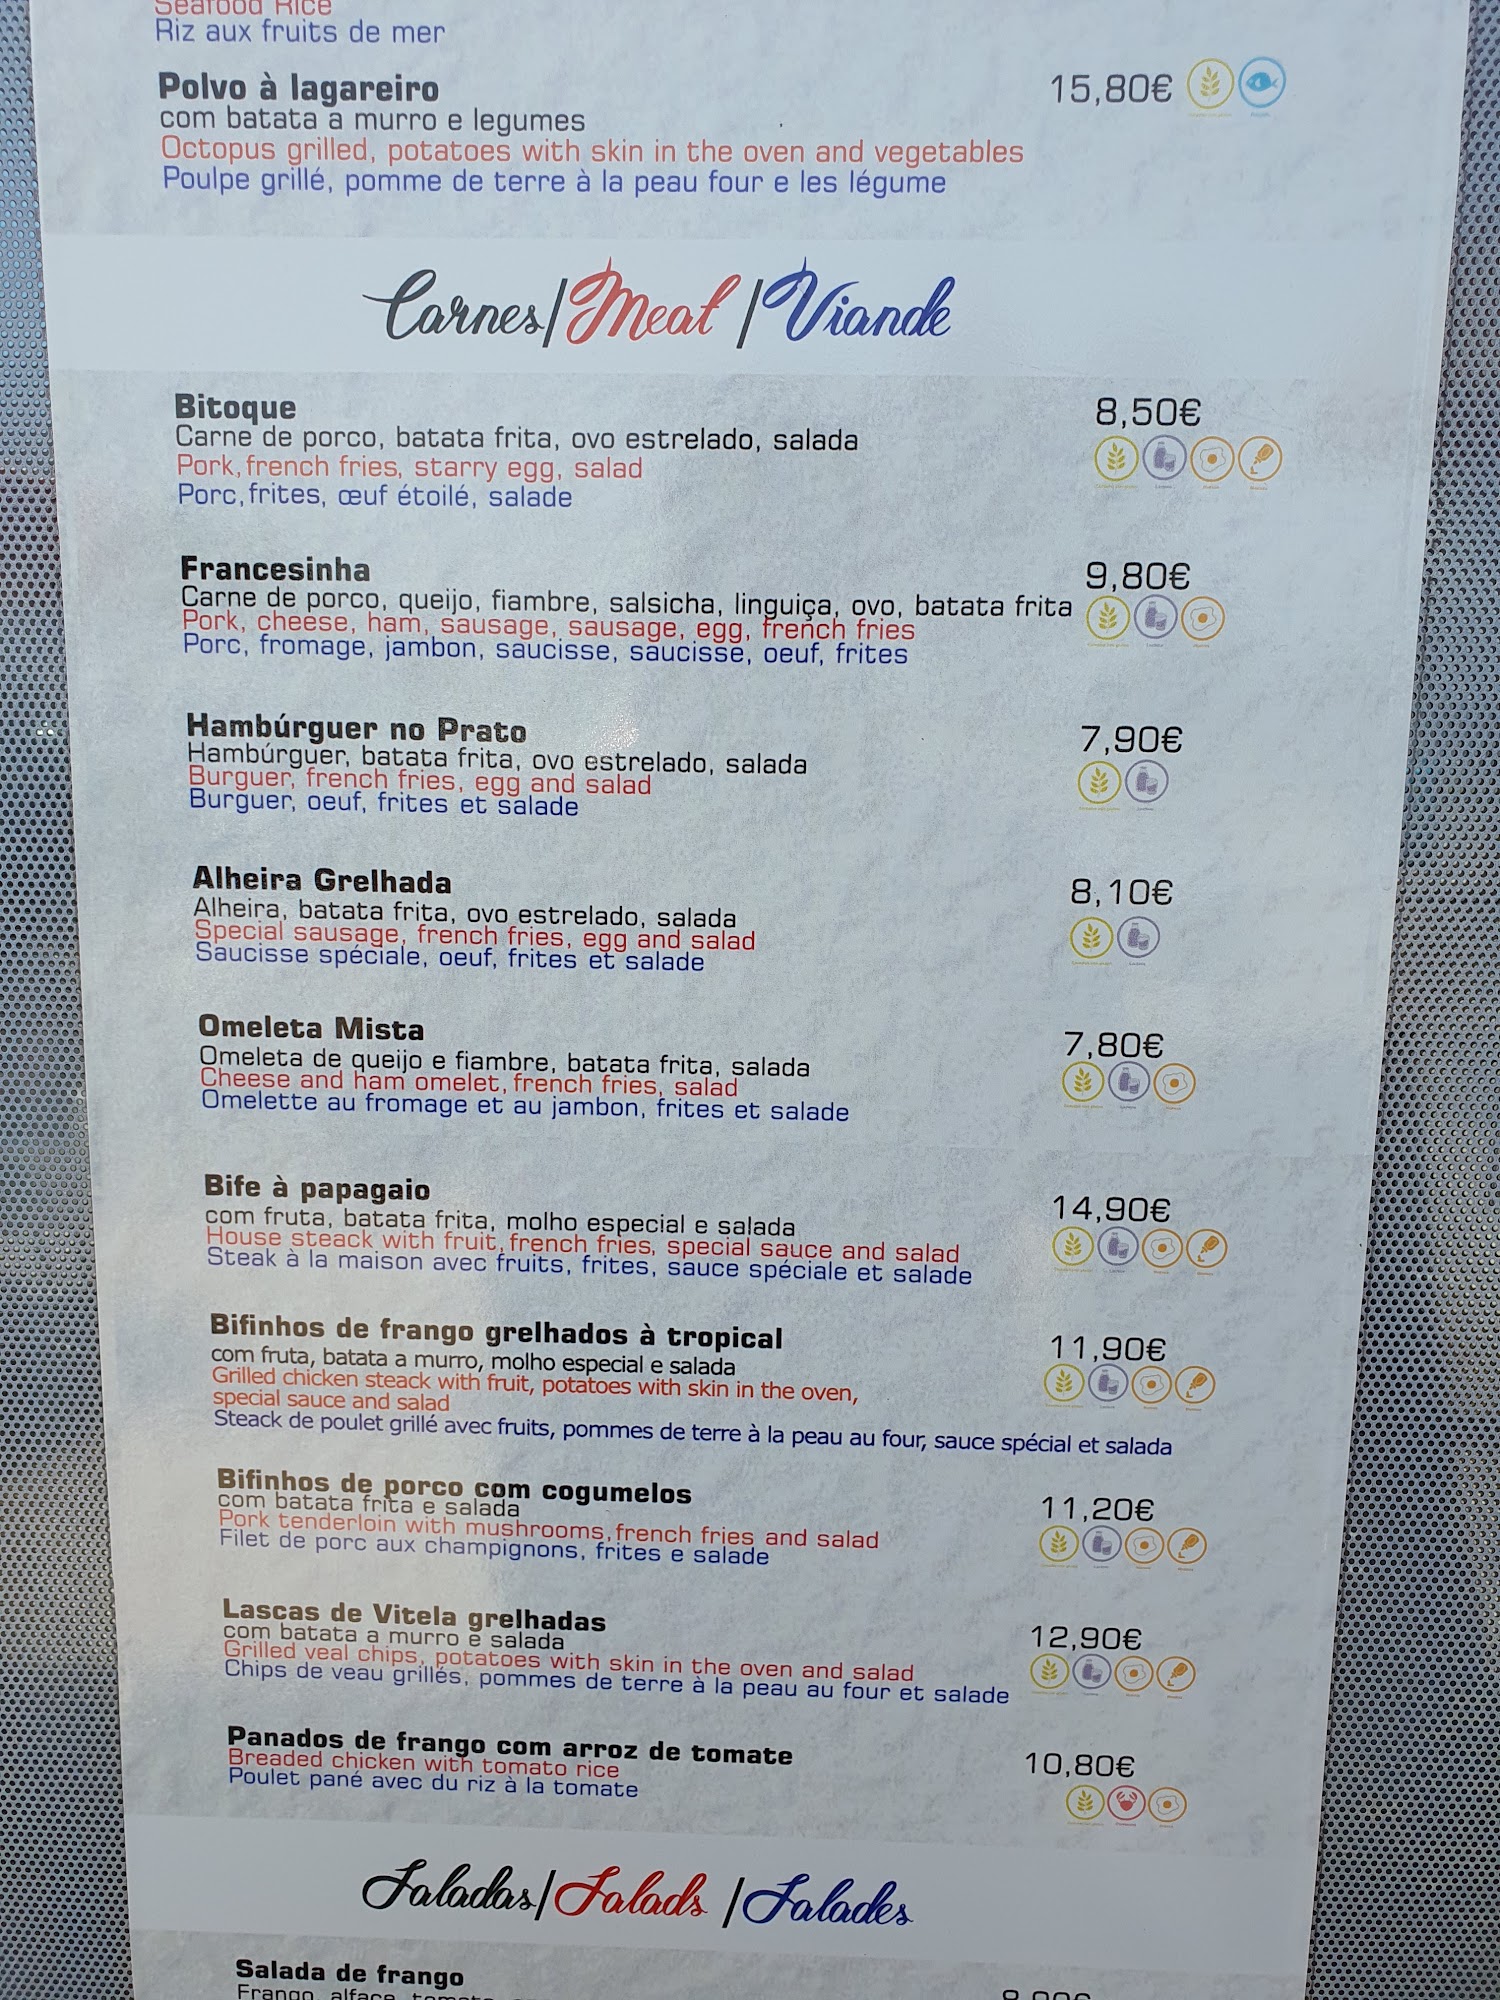 Seafood Rice
Riz aux fruits de mer
Polvo à lagareiro
15,80€
com batata a murro e legumes
Octopus grilled, potatoes with skin in the oven and vegetables
Poulpe grillé, pomme de terre à la peau four e les légume
Carnes/Meat/Viande
Bitoque
8,50€
Carne de porco, batata frita, ovo estrelado, salada
Pork, french fries, starry egg, salad
Porc, frites, œuf étoilé, salade
Francesinha
9,80€
Carne de porco, queijo, fiambre, salsicha, linguiça, ovo, batata frita
Pork, cheese, ham, sausage, sausage, egg, french fries
Porc, fromage, jambon, saucisse, saucisse, oeuf, frites
Hambúrguer no Prato
7,90€
Hambúrguer, batata frita, ovo estrelado, salada
Burguer, french fries, egg and salad
Burguer, oeuf, frites et salade
Alheira Grelhada
8,10€
Alheira, batata frita, ovo estrelado, salada
Special sausage, french fries, egg and salad
Saucisse spéciale, oeuf, frites et salade
Omeleta Mista
7,80€
Omeleta de queijo e fiambre, batata frita, salada
Cheese and ham omelet, french fries, salad
Omelette au fromage et au jambon, frites et salade
Bife à papagaio
14,90€
com fruta, batata frita, molho especial e salada
House steack with fruit, french fries, special sauce and salad
Steak à la maison avec fruits, frites, sauce spéciale et salade
Bifinhos de frango grelhados à tropical
11,90€
com fruta, batata a murro, molho especial e salada
Grilled chicken steack with fruit, potatoes with skin in the oven,
special sauce and salad
Steack de poulet grillé avec fruits, pommes de terre à la peau au four, sauce spécial et salada
Bifinhos de porco com cogumelos
11,20€
com batata frita e salada
Pork tenderloin with mushrooms, french fries and salad
Filet de porc aux champignons, frites e salade
Lascas de Vitela grelhadas
12,90€
com batata a murro e salada
Grilled veal chips, potatoes with skin in the oven and salad
Chips de veau grillés, pommes de terre à la peau au four et salade
Panados de frango com arroz de tomate
10,80€
Breaded chicken with tomato rice
Poulet pané avec du riz à la tomate
Saladas/Salads/Salades
Salada de frango
Frango, alface, tomate,